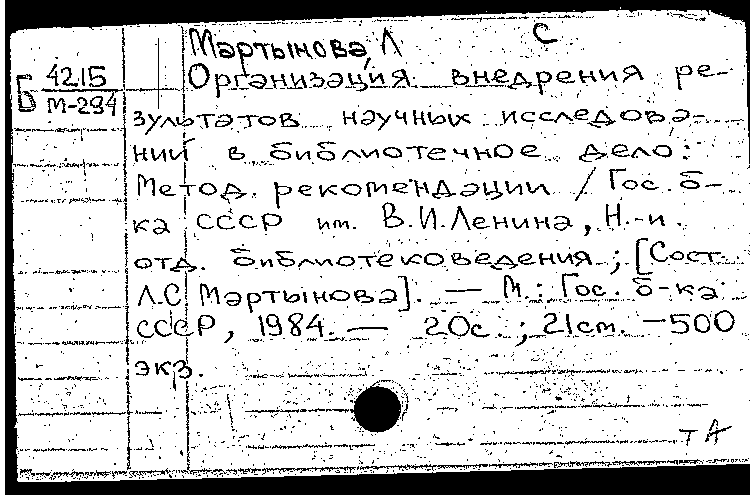 Мартынова, Л С
Б 4215 Организация внедрения ре-
М-294
зультатов научных исследова-
ний в библиотечное дело:
Метод. рекомендации / Гос. б-
ка СССР им. В.И.Ленина, Н.-и.
отд. библиотековедения; [Сост.
Л.С. Мартынова]. — М.: Гос. б-ка
СССР, 1984. — 20с.; 21cm. — 500
экз.
тА